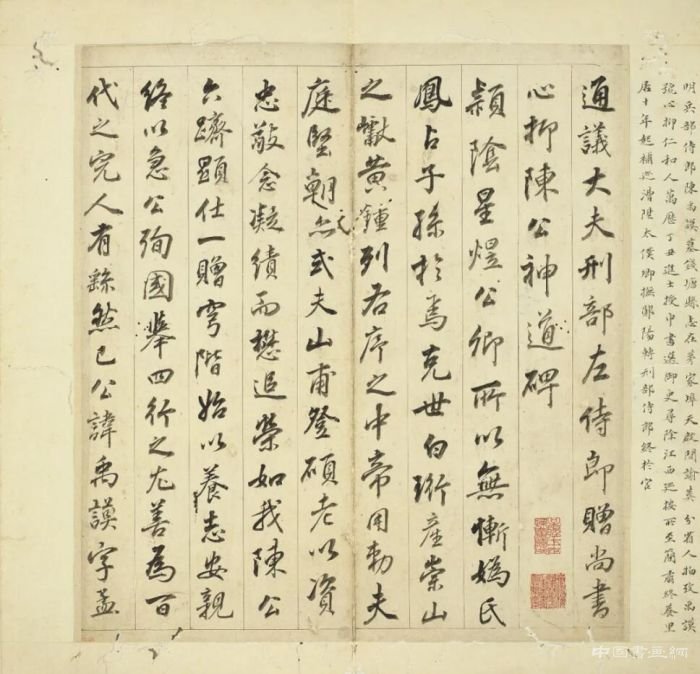 明兵部侍郎陳禹謨墓錢塘縣志在茅家埠天啟間諭葬 分省人物攷禹謨
號心抑仁和人萬歷丁丑進士授中書選御史尋除江西巡按所至簡肅終養里
居十年起補巡漕陞太僕卿撫鄖陽轉刑部侍郎終於官
通議大夫刑部左侍郎贈尚書
心抑陳公神道碑
潁陰星煜公卿所以無慚媯氏
鳳占子孫於焉克世白珩產崇山
之獻黃鍾列右序之中帝用勑夫
庭堅朝亦式夫山甫登碩老以資
忠敵念凝績而懋追榮如我陳公
六躋顯仕一贈穹階始以養志安親
終以急公殉國舉四行之尤善為百
代之完人有繇然已公諱禹謨字孟
中国書画網